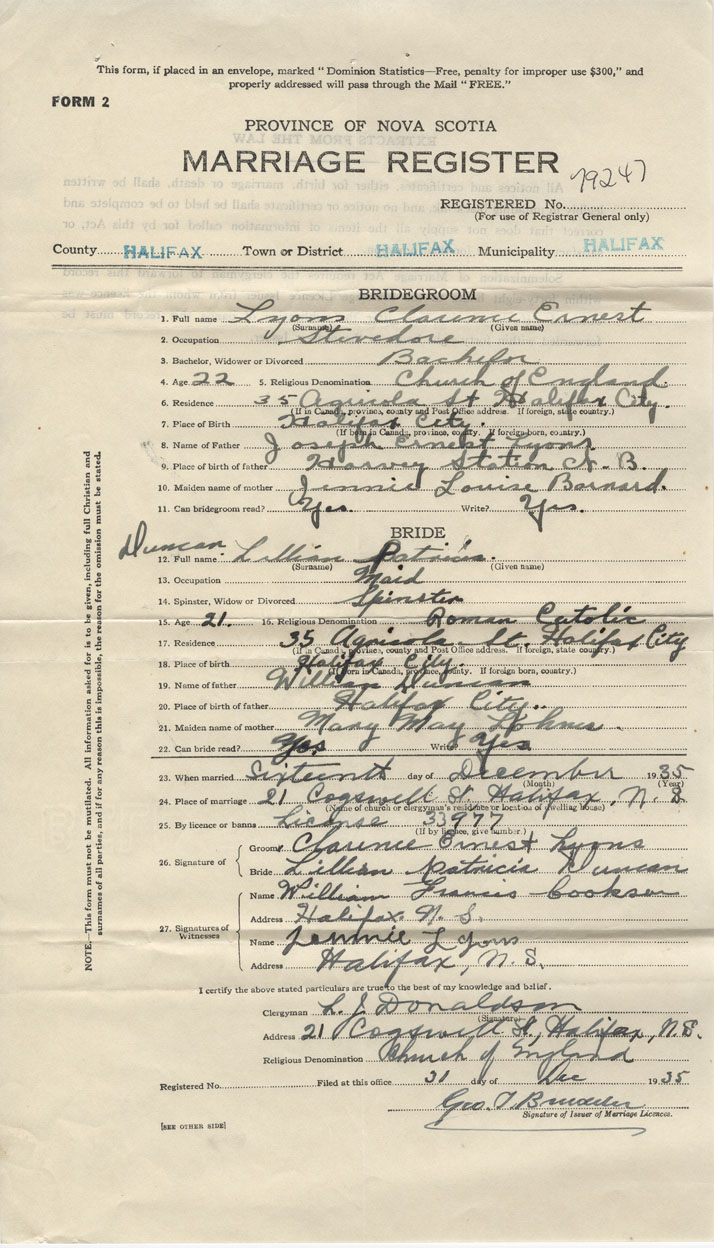 This form, if placed in an envelope, marked "Dominion Statistics—Free, penalty for improper use $300," and
properly addressed will pass through the Mail "FREE."
FORM 2
PROVINCE OF NOVA SCOTIA
MARRIAGE REGISTER
79247
REGISTERED No.
(For use of Registrar General only)
County HALIFAX Town or District HALIFAX Municipality HALIFAX
BRIDEGROOM
1. Full name Lyons Clarence Ernest
(Surname) (Given name)
2. Occupation Stevedore
3. Bachelor, Widower or Divorced Bachelor
4. Age 22 5. Religious Denomination Church of England.
6. Residence 35 Agricola St Halifax City.
(If in Canada, province, county and Post Office address. If foreign, state country.)
7. Place of Birth Halifax City.
(If born in Canada, province, county. If foreign-born, country.)
8. Name of Father Joseph Ernest Lyons
9. Place of birth of father Harvey Station N. B.
10. Maiden name of mother Jennie Louise Barnard.
11. Can bridegroom read? Yes. Write? Yes.
BRIDE
12. Full name Duncan Lillian Patricia.
(Surname) (Given name)
13. Occupation Maid
14. Spinster, Widow or Divorced Spinster
15. Age 21. 16. Religious Denomination Roman Catolic
17. Residence 35 Agricola St. Halifax City
(If in Canada, province, county and Post Office address. If foreign, state country.)
18. Place of birth Halifax City.
(If born in Canada, province, county. If foreign-born, country.)
19. Name of father William Duncan
20. Place of birth of father Halifax City.
21. Maiden name of mother Mary May
22. Can bride read? Yes Write? Yes
23. When married Sixteenth day of December 1935
(Month) (Year)
24. Place of marriage 21 Cogswell St. Halifax, N. S.
(Name of church or clergyman's residence or location of dwelling house)
25. By licence or banns License 33977
(If by licence, give number.)
26. Signature of
Groom Clarence Ernest Lyons
Bride Lillian Patricia Duncan
27. Signatures of Witnesses
Name William Francis Cookson
Address Halifax N. S.
Name Jennie Lyons
Address Halifax, N. S.
I certify the above stated particulars are true to the best of my knowledge and belief.
Clergyman L. J. Donaldson
(Signature)
Address 21 Cogswell St, Halifax, N.S.
Religious Denomination Church of England
Registered No. Filed at this office 31 day of Dec 1935
Geo. T.
Signature of Issuer of Marriage Licences.
[SEE OTHER SIDE]
NOTE.—This form must not be mutilated. All information asked for is to be given, including full Christian and
surnames of all parties, and if for any reason this is impossible, the reason for the omission must be stated.